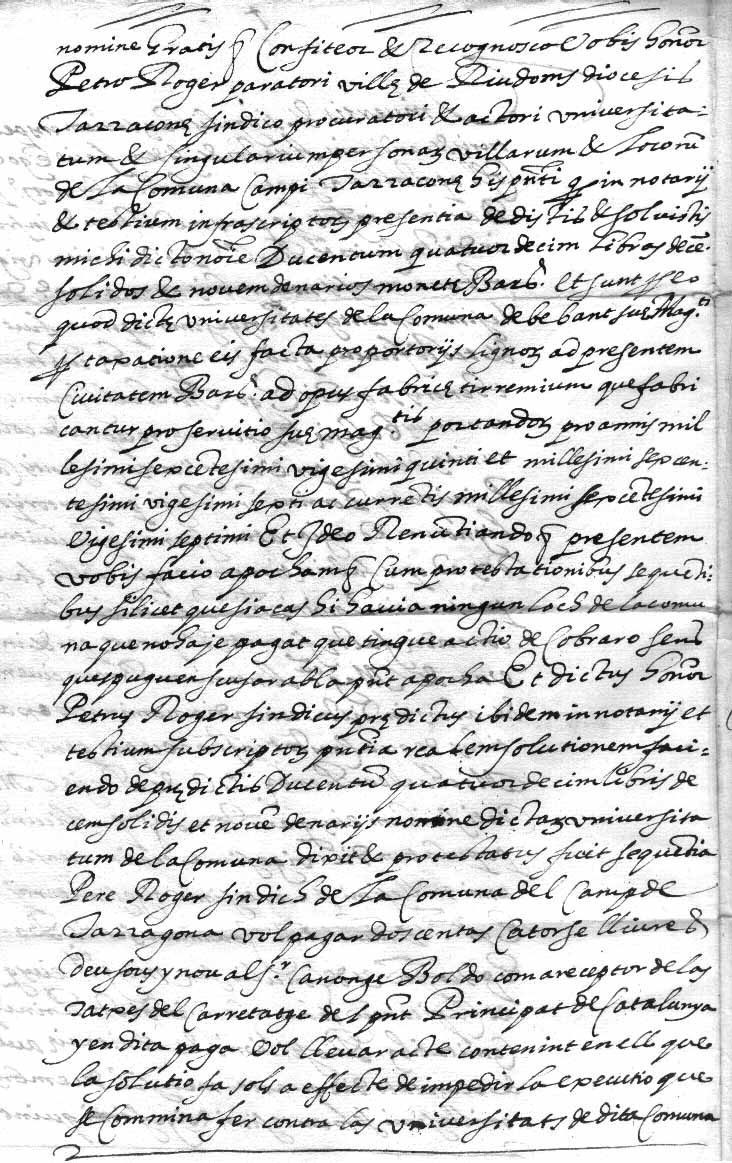 nomine Gratis etc. Confiteor & Recognosco Vobis honor.
Petro Roger paratori villę de Riudoms diocesis
Tarraconę sindico procuratori & actori universita-
tum & singularium personaꝝ villarum & locorũ
de La Comuna Campi Tarraconę his pñti ꝙ in notarij
& testium infrascriptoꝝ presentia dedistis & solvistis
michi dicto noĩe Ducentum quatuordecim libras decẽ
solidos & novem denarios monetę Barõ. et sunt pro eo
quod dictę universitates de la Comuna debebant suę Mag.ti
pro taxatione eis facta pro portorijs lignoꝝ ad presentem
Civitatem Barõ. ad opus fabricę tirremium que fabri
cantur pro servitio suę mag.tis portandoꝝ pro annis mil
lesimi sexcẽtesimi vigesimi quinti et millesimi sexcen-
tesimi vigesimi sexti ac currẽtis millesimi sexcẽtesimi
Vigesimi septimi Et Ideo Renũtiando etc. presentem
vobis facio apocham etc. Cum protestationibus sequẽti-
bus silicet que si a cas hi havia ningun loch de la comu
na que no haje pagat que tingue actio de Cobraro sens
ques puguen scusar ab la pñt apocha Et dictus honor.
Petrus Roger sindicus prędictus ibidem in notarij et
testium subscriptoꝝ pñtia realem solutionem faci-
endo de prędictis Ducentũ quatuordecim libris de
cem solidis et novẽ denarijs nomine dictaꝝ universita
tum de la Comuna dixit & protestatus fuit sequẽtia
Pere Roger sindich de La Comuna del Camp de
Tarragona vol pagar doscentas Catorse lliures
deu sous y nou al S.r Canonge Boldo com a receptor de las
Tatxes del Carretatge del pñt Principat de Catalunya
y en dita paga Vol llevar acte contenint en ell que
la solutio fa sols a effecte de impedir la executio que
se Commina fer contra las universitats de dita Comuna